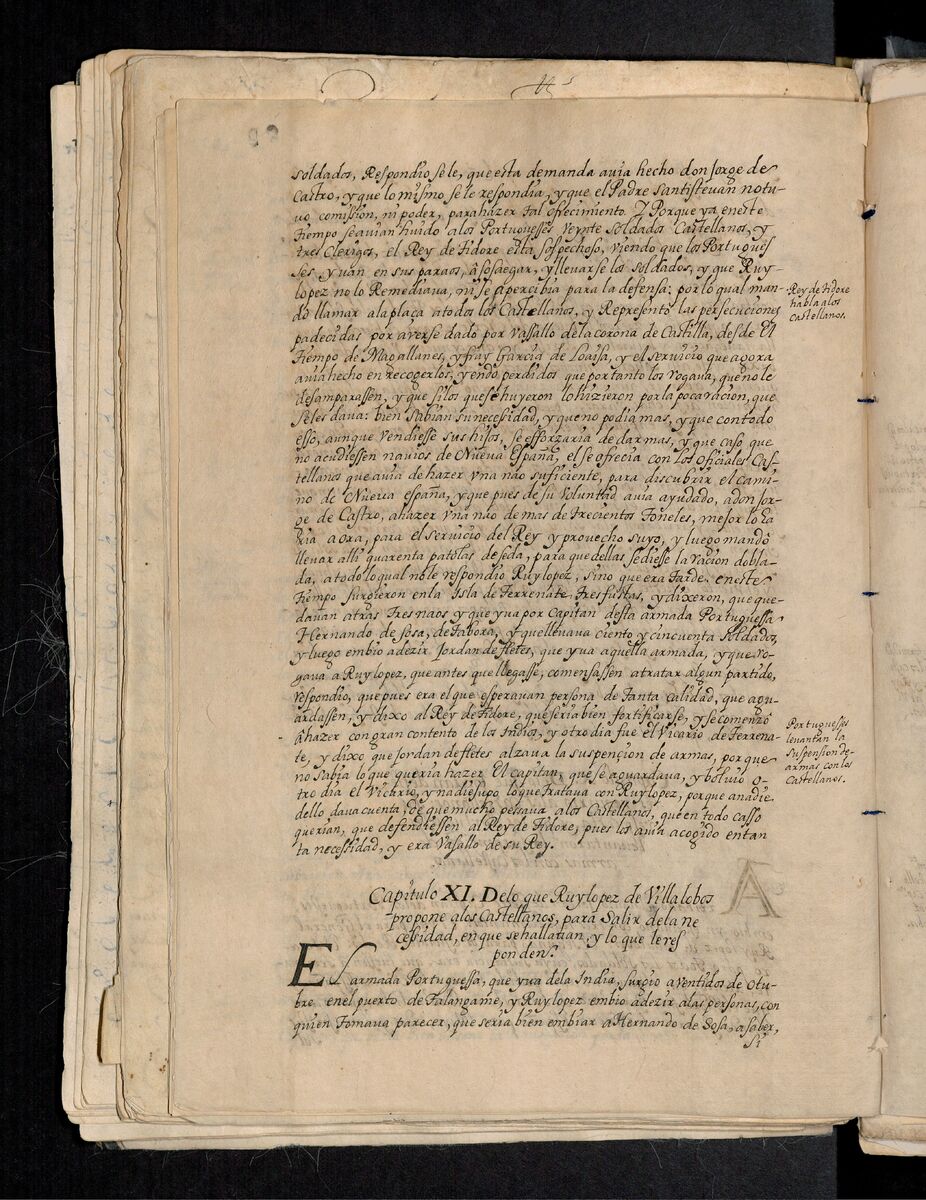 soldados, Respondiosele, que esta demanda auia hecho don Jorge de
Castro, y que lo mismo se le respondia, y que el Padre Santisteuan no tu-
uo comission, ni poder, para hazer tal ofrecimiento. Y Porque ya en este
tiempo se auian huido a los Portuguesses veynte soldados Castellanos, y
tres Clerigos, el Rey de Tidore esta sospechoso, viendo que los Portugues
ses yuan en sus paraos, â sosaegar, y lleuarse los soldados, y que Ruy-
lopez no lo Remediaua, ni se apercibia para la defensa: por lo qual man-
dô llamar a la plaça a todos los Castellanos, y Represento las persecuciones
padecidas por averse dado por Vassallo de la corona de Castilla, desde El
tiempo de Magallanes, y fray Garcia de Loaisa, y el servicio que agora
auia hecho en recogerlos, yendo perdidos que por tanto los rogaua, que no le
desamparassen, y que si los que se huyeron lo hizieron por la poca racion, que
se les daua: bien sabian su necessidad, y que no podia mas, y que con todo
esso, aunque vendiesse sus hijos, se esforzaria de dar mas, y que caso que
no acudiessen nauios de Nueva España, el se ofrecia con los oficiales Cas-
tellanos que auia de hazer vna nâo suficiente, para discubrir el cami-
no de Nueva españa, y que pues de su voluntad auia ayudado, a don Jor-
ge de Castro, a hazer vna nâo de mas de trecientos Toneles, mejor lo ha
ria aora, para el servicio del Rey y provecho suyo, y luego mandô
lleuar alli quarenta patolas de seda, para que dellas se diesse la racion dobla-
da, a todo lo qual no le respondio Ruylopez, sino que era tarde. en este
tiempo surgieron en la Isla de Terrenate, tres fustas, y dixeron, que que-
dauan atras tres naos y que yua por Capitan desta armada Portuguessa
Hernando de sosa, de Tabora, y que lleuaua ciento y cincuenta soldados,
y luego embio a dezir Jordan de fletes, que yua aquella armada, y que ro-
gaua a Ruylopez, que antes que llegasse, comensassen a tratar algun partido,
respondio, que pues era el que esperauan persona de tanta calidad, que agu-
ardassen, y dixo al Rey de Tidore, que seria bien fortificarse, y se comenzô
â hazer con gran contento de los Indios, y otro dia fue el Vicario de Terrena-
te, y dixo que Jordan de fletes alzaua la suspençion de armas, porque
no sabia lo que queria hazer El capitan, que se aguardaua, y boluio o-
tro dia el Vicario, y nadie supo lo que trataua con Ruylopez, porque a nadie
dello daua cuenta, de que mucho pessaua a los Castellanos, que en todo casso
querian, que defendiessen al Rey de Tidore, pues los auia acogido en tan
ta necessidad, y era Vasallo de su Rey.
Rey de Tidore
habla a los
Castellanos.
Portuguesses
leuantan la
suspension de
armas con los
Castellanos.
Capitulo XI. De lo que Ruylopez de Villalobos
propone a los Castellanos, para salir de la ne
cessidad, en que se hallauan, y lo que le res
ponden.
EL armada Portuguessa, que yua de la India, surgio a ventidos de Otu-
bre en el puerto de Talangame, y Ruylopez embio a dezir a las personas, con
quien tomaua parecer, que seria bien embiar a Hernando de Sosa, a saber,
si